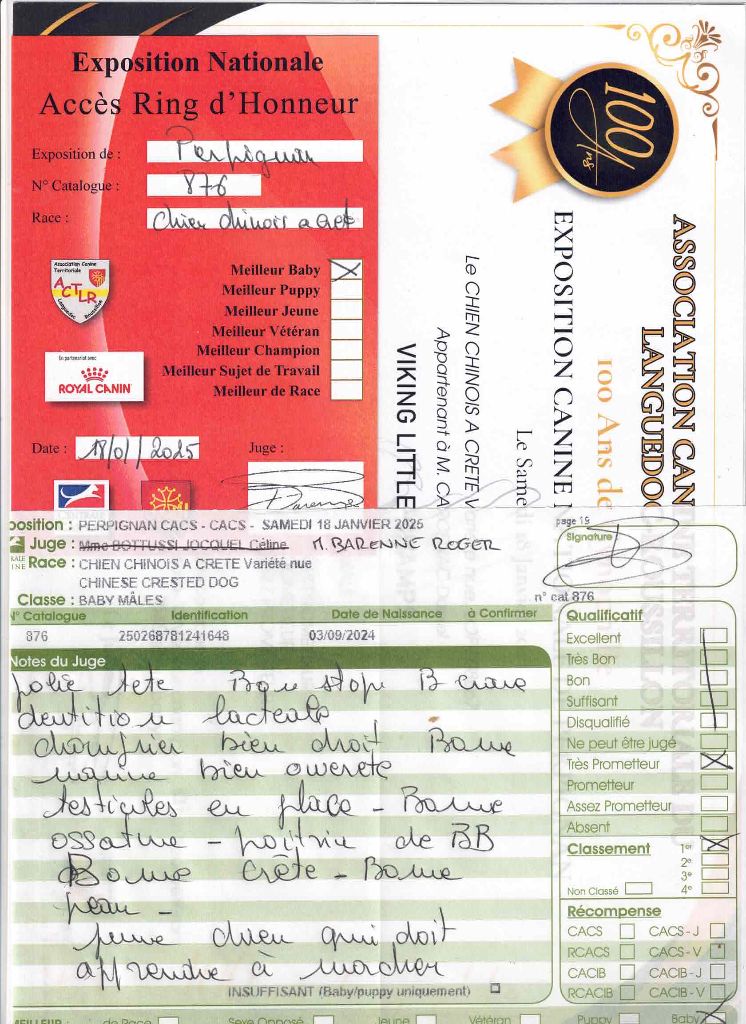 Exposition Nationale
Accès Ring d'Honneur
Exposition de : Perpignan
N° Catalogue : 876
Race : Chien chinois a crete
Association Canine
Territoriale
ACTLR
Languedoc Roussillon
En partenariat avec
ROYAL CANIN
Meilleur Baby
Meilleur Puppy
Meilleur Jeune
Meilleur Vétéran
Meilleur Champion
Meilleur Sujet de Travail
Meilleur de Race
Date : 18/01/2025
Juge :
100
Ans
ASSOCIATION CAN
LANGUEDO
100 Ans de
EXPOSITION CANINE
Le Same
Le CHIEN CHINOIS A CRETE V
Appartenant à M. CA
VIKING LITTLE
position : PERPIGNAN CACS - CACS - SAMEDI 18 JANVIER 2025
page 19
Juge : Mme BOTTUSSI JOCQUEL Céline M. BARENNE ROGER
Signature
Race : CHIEN CHINOIS A CRETE Variété nue
CHINESE CRESTED DOG
Classe : BABY MÂLES
n° cat 876
N° Catalogue Identification Date de Naissance à Confirmer
876 250268781241648 03/09/2024
Notes du Juge
jolie tete Bon stop B crane
dentition lacteale
chanfrein bien droit Bonne
narine bien ouverte
testicules en place - Bonne
ossature - poitrine de BB
Bonne Crête - Bonne
peau -
jeune chien qui doit
apprendre à marcher
INSUFFISANT (Baby/puppy uniquement)
Qualificatif
Excellent
Très Bon
Bon
Suffisant
Disqualifié
Ne peut être jugé
Très Prometteur
Prometteur
Assez Prometteur
Absent
Classement 1er
2e
3e
Non Classé 4e
Récompense
CACS CACS - J
RCACS CACS - V
CACIB CACIB - J
RCACIB CACIB - V
MEILLEUR : de Race Sexe Opposé Jeune Vétéran Puppy Baby